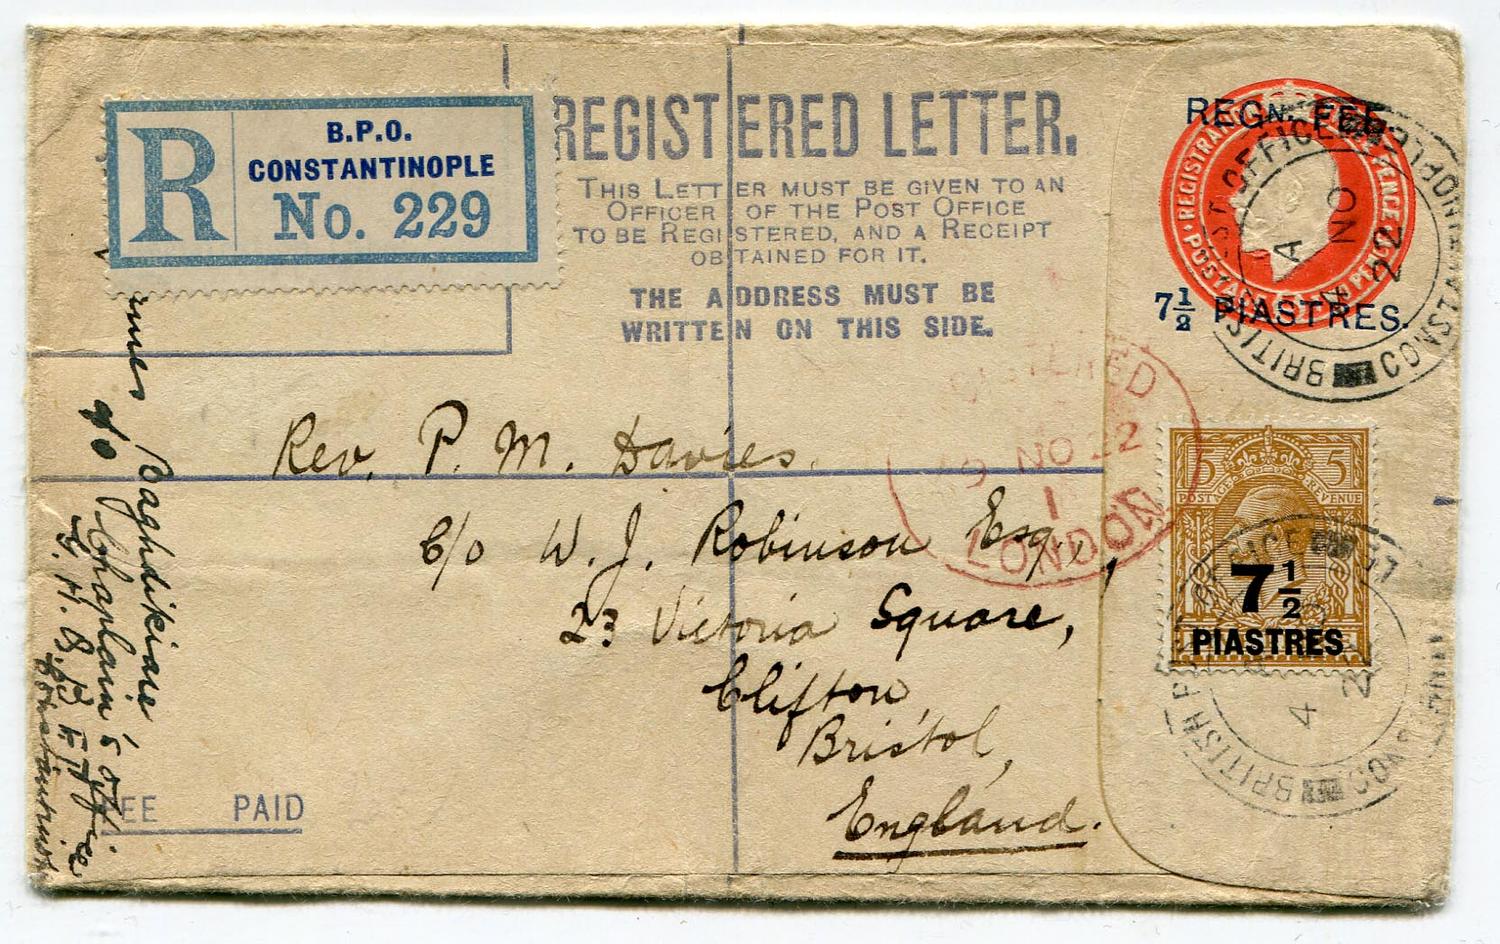 B.P.O.
CONSTANTINOPLE
R No. 229
REGISTERED LETTER.
THIS LETTER MUST BE GIVEN TO AN
OFFICER OF THE POST OFFICE
TO BE REGISTERED, AND A RECEIPT
OBTAINED FOR IT.
THE ADDRESS MUST BE
WRITTEN ON THIS SIDE.
REGN. FEE
7½ PIASTRES.
BRITISH POST OFFICE CONSTANTINOPLE
A
4 NO
22
REGISTERED
9 NO 22
1
LONDON
Rev. P. M. Davies.
c/o W. J. Robinson Esq.,
23 Victoria Square,
Clifton,
Bristol,
England.
5 5
POSTAGE REVENUE
7½
PIASTRES
BRITISH
4
Baghdikian
c/o Chaplain's office
G. H. Q.
FEE PAID